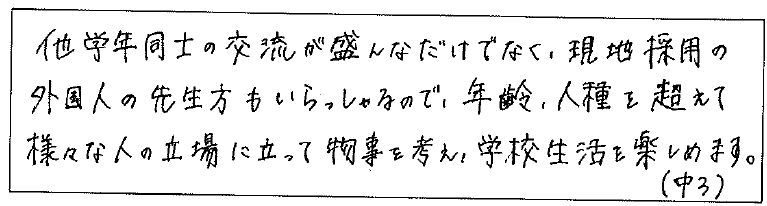 他学年同士の交流が盛んなだけでなく、現地採用の
外国人の先生方もいらっしゃるので、年齢、人種を超えて
様々な人の立場に立って物事を考え、学校生活を楽しめます。
(中3)